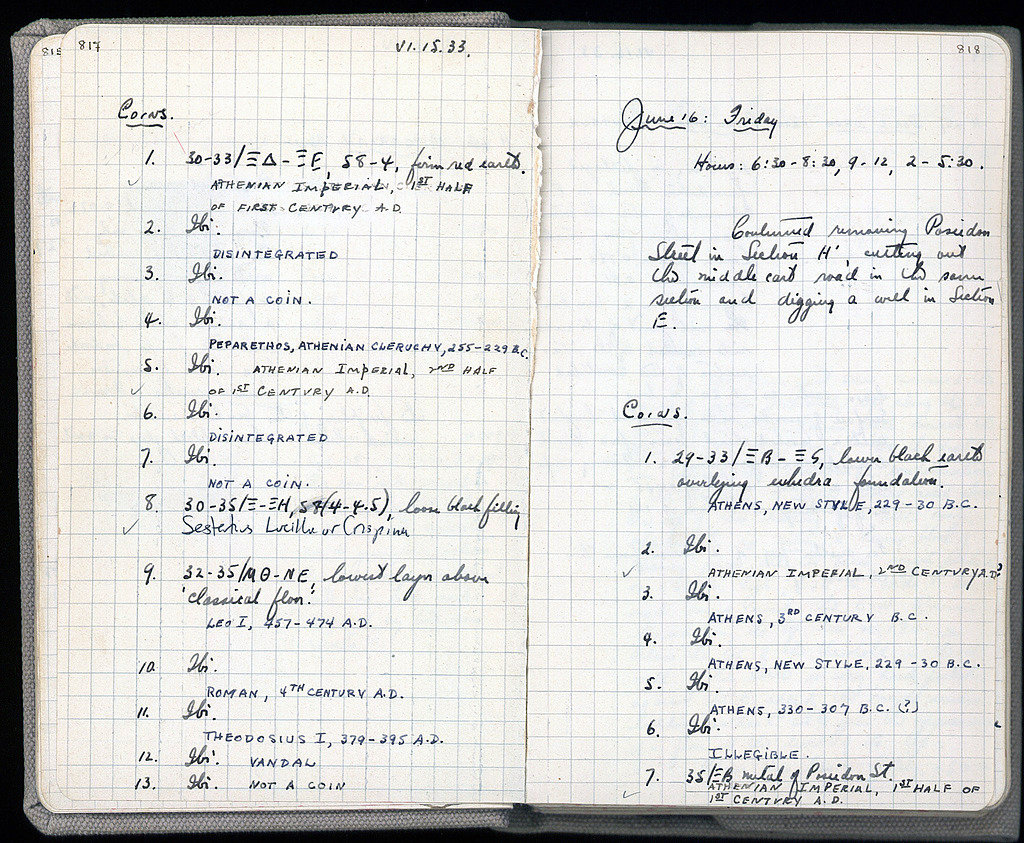 815
817
VI.15.33.
Coins.
1. 30-33/ΞΔ-ΞΕ, 58-4, firm red earth.
ATHENIAN IMPERIAL, 1ST HALF
OF FIRST CENTURY A.D.
2. Ibi.
DISINTEGRATED
3. Ibi.
NOT A COIN.
4. Ibi.
PEPARETHOS, ATHENIAN CLERUCHY, 255-229 B.C.
5. Ibi. ATHENIAN IMPERIAL, 2ND HALF
OF 1ST CENTURY A.D.
6. Ibi.
DISINTEGRATED
7. Ibi.
NOT A COIN.
8. 30-35/Ξ-ΞΗ, 57(4-4.5), loose black filling
Sestertius Lucilla or Crispina
9. 32-35/ΜΘ-ΝΕ, lowest layer above
'classical floor.'
LEO I, 457-474 A.D.
10. Ibi.
ROMAN, 4TH CENTURY A.D.
11. Ibi.
THEODOSIUS I, 379-395 A.D.
12. Ibi. VANDAL
13. Ibi. NOT A COIN
818
June 16: Friday
Hours: 6:30-8:30, 9-12, 2-5:30.
Continued removing Poseidon
Street in Section H', cutting out
the middle east road in the same
section and digging a well in Section
E.
Coins.
1. 29-33/ΞΒ-ΞS, lower black earth
overlying exhedra foundation.
ATHENS, NEW STYLE, 229-30 B.C.
2. Ibi.
ATHENIAN IMPERIAL, 2ND CENTURY A.D.?
3. Ibi.
ATHENS, 3RD CENTURY B.C.
4. Ibi.
ATHENS, NEW STYLE, 229-30 B.C.
5. Ibi.
ATHENS, 330-307 B.C. (?)
6. Ibi.
ILLEGIBLE.
7. 35/ΞΒ metal of Poseidon St.
ATHENIAN IMPERIAL, 1ST HALF OF
1ST CENTURY A.D.